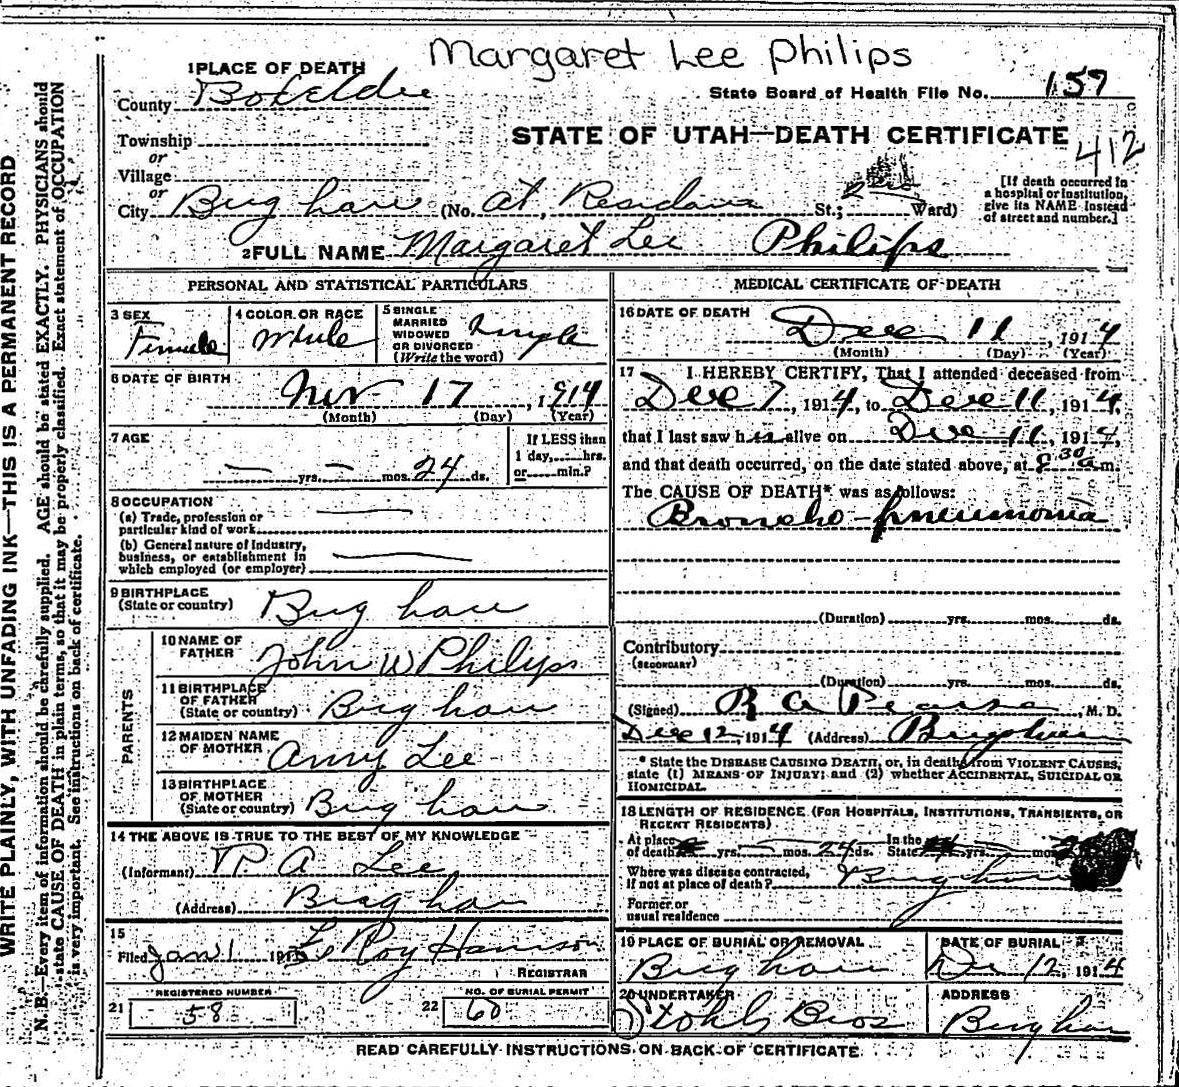 Margaret Lee Philips
1 PLACE OF DEATH
County Boxelder
State Board of Health File No. 157
STATE OF UTAH—DEATH CERTIFICATE
412
Township
or
Village
or
City Brigham (No. at Residence St.; 2nd Ward)
[If death occurred in a hospital or institution, give its NAME instead of street and number.]
2 FULL NAME Margaret Lee Philips
PERSONAL AND STATISTICAL PARTICULARS
3 SEX Female
4 COLOR OR RACE White
5 SINGLE MARRIED WIDOWED OR DIVORCED (Write the word) Single
6 DATE OF BIRTH Nov 17, 1914
(Month) (Day) (Year)
7 AGE — yrs. — mos. 24 ds.
If LESS than 1 day, hrs. or min.?
8 OCCUPATION
(a) Trade, profession or particular kind of work —
(b) General nature of industry, business, or establishment in which employed (or employer) —
9 BIRTHPLACE (State or country) Brigham
PARENTS
10 NAME OF FATHER John W Philips
11 BIRTHPLACE OF FATHER (State or country) Brigham
12 MAIDEN NAME OF MOTHER Anny Lee
13 BIRTHPLACE OF MOTHER (State or country) Brigham
14 THE ABOVE IS TRUE TO THE BEST OF MY KNOWLEDGE
(Informant) Lee
(Address) Brigham
15
Filed Jan 1 191 Le Roy Harrison
REGISTRAR
21 REGISTERED NUMBER 58
22 NO. OF BURIAL PERMIT 60
MEDICAL CERTIFICATE OF DEATH
16 DATE OF DEATH Dec 11, 1914
(Month) (Day) (Year)
17 I HEREBY CERTIFY, That I attended deceased from
Dec 7, 1914, to Dec 11, 1914,
that I last saw h alive on Dec 11, 1914,
and that death occurred, on the date stated above, at 8 30 a m.
The CAUSE OF DEATH* was as follows:
Broncho-pneumonia
(Duration) yrs. mos. ds.
Contributory
(SECONDARY)
(Duration) yrs. mos. ds.
(Signed) R A Pearse, M. D.
Dec 12, 1914 (Address) Brigham
* State the DISEASE CAUSING DEATH, or, in deaths from VIOLENT CAUSES, state (1) MEANS OF INJURY; and (2) whether ACCIDENTAL, SUICIDAL OR HOMICIDAL.
18 LENGTH OF RESIDENCE (FOR HOSPITALS, INSTITUTIONS, TRANSIENTS, OR RECENT RESIDENTS)
At place of death yrs. — mos. 24 ds. In the State yrs. mos.
Where was disease contracted, if not at place of death? Brigham
Former or usual residence
19 PLACE OF BURIAL OR REMOVAL Brigham
DATE OF BURIAL Dec 12, 1914
20 UNDERTAKER Stohl Bros
ADDRESS Brigham
READ CAREFULLY INSTRUCTIONS ON BACK OF CERTIFICATE
WRITE PLAINLY, WITH UNFADING INK—THIS IS A PERMANENT RECORD
N. B.—Every item of information should be carefully supplied. AGE should be stated EXACTLY. PHYSICIANS should
state CAUSE OF DEATH in plain terms, so that it may be properly classified. Exact statement of OCCUPATION
is very important. See instructions on back of certificate.